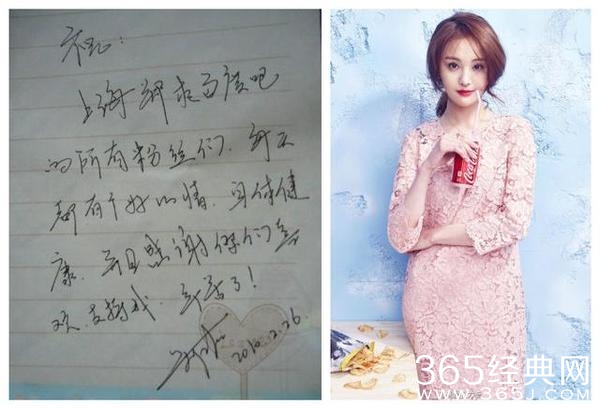 祝:
上海郑爽百度吧
的所有粉丝们,每天
都有个好心情,身体健
康,并且感谢你们喜
欢、支持我,辛苦了!
2010.2.26
Coca-Cola
365经典网
365J.COM